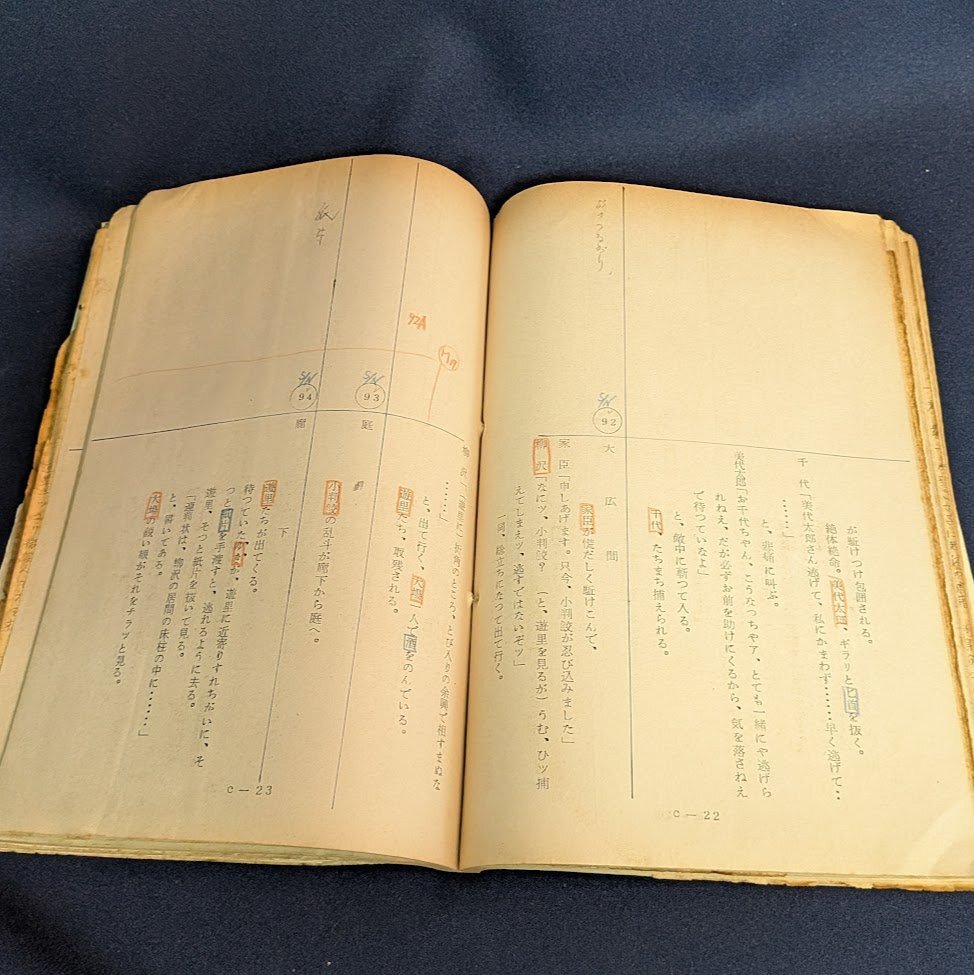 が駈けつけ包囲される。
千代「美代太郎さん逃げて、私にかまわず……早く逃げて‥
……」
絶体絶命。美代太郎、ギラリと匕首を抜く。
と、悲痛に叫ぶ。
美代太郎「お千代ちゃん、こうなつちやア、とても一緒にや逃げら
れねえ、だが必ずお前を助けにくるから、気を落さねえ
で待つていなよ」
と、敵中に斬つて入る。
千代、たちまち捕えられる。
92
大広間
家臣が慌だしく駈けこんで、
家臣「申しあげます。只今、小判鮫が忍び込みました」
柳沢「なにッ、小判鮫？（と、遊里を見るが）うむ、ひッ捕
えてしまえッ、逃すではないぞッ」
一同、総立ちになつて出て行く。
C—22
92A
……」
と、出て行く、大場一人で酒をのんでいる。
遊里たち、取残される。
93
庭
小判鮫の乱斗が廊下から庭へ。
94
廊下
遊里たちが出てくる。
待つていた
つと を手渡すと、逃れるように去る。
が、遊里に近寄りすれちがいに、そ
遊里、そつと紙片を抜いて見る。
「連判状は、柳沢の居間の床柱の中に……」
と、書いてある。
大場の鋭い眼がそれをチラッと見る。
C—23
紙片